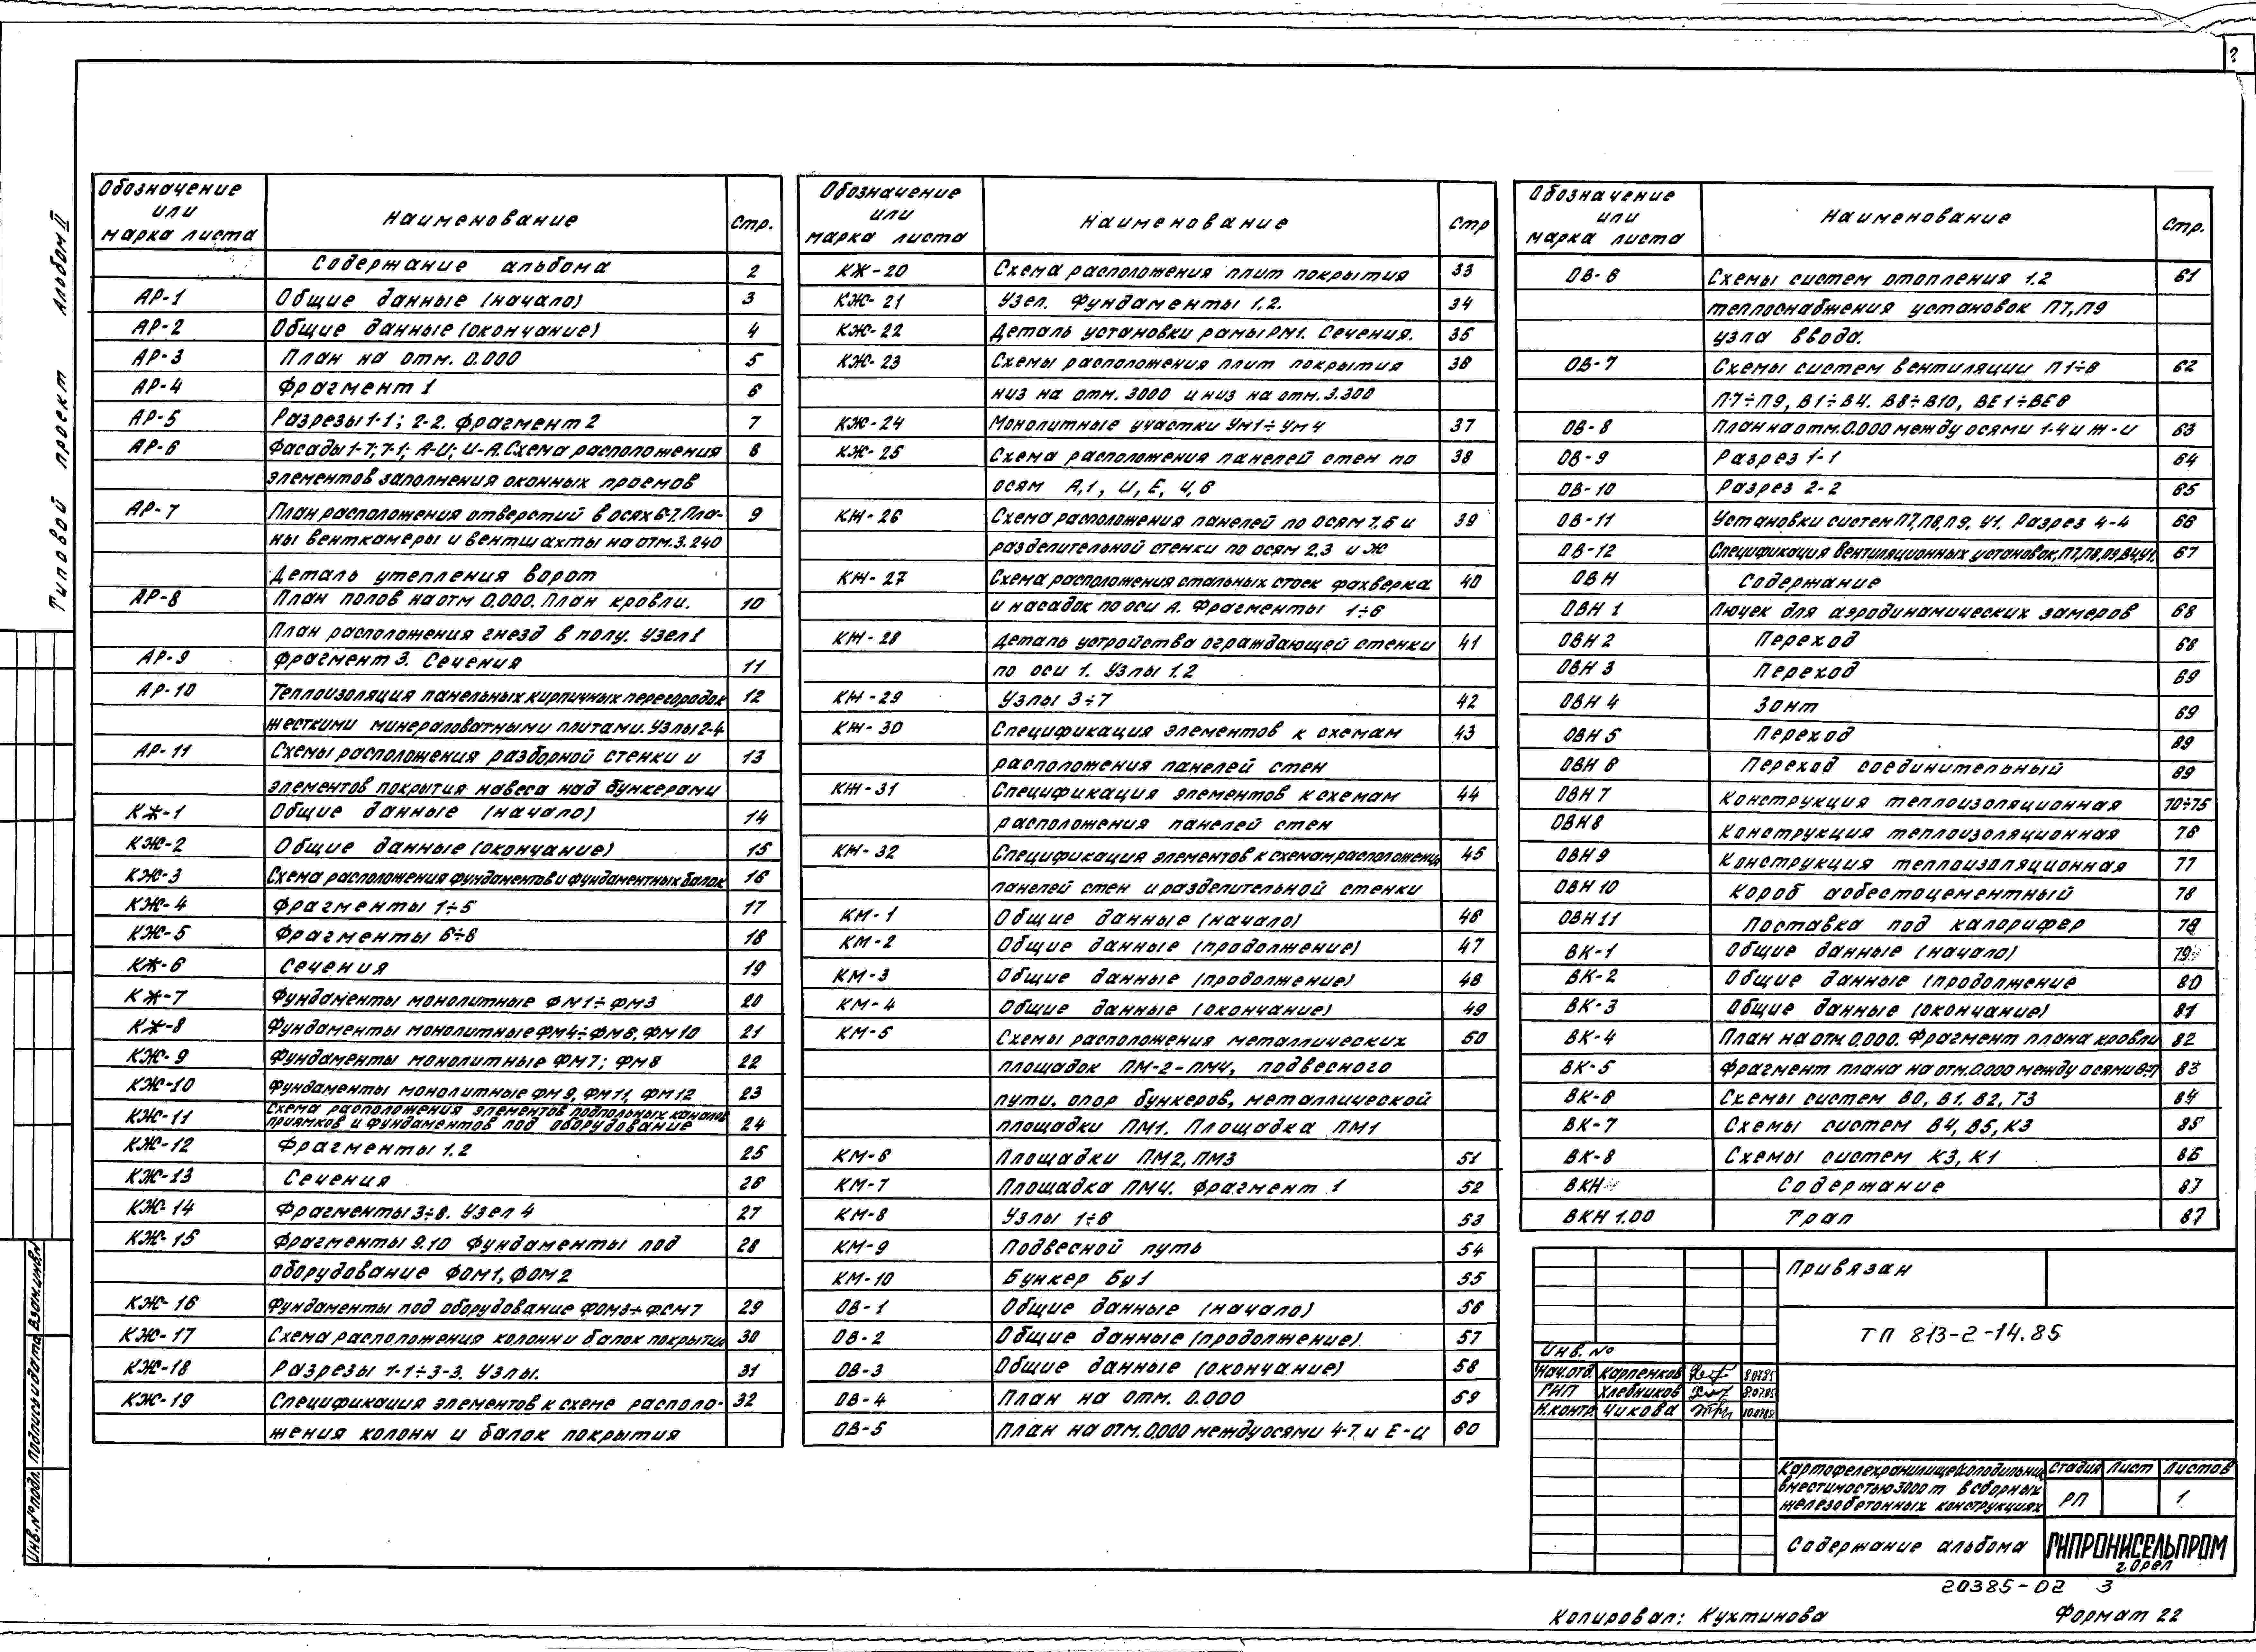 2
Типовой проект Альбом II
Обозначение или марка листа Наименование Стр.
Содержание альбома 2
АР-1 Общие данные (начало) 3
АР-2 Общие данные (окончание) 4
АР-3 План на отм. 0.000 5
АР-4 Фрагмент 1 6
АР-5 Разрезы 1-1; 2-2. Фрагмент 2 7
АР-6 Фасады 1-7; 7-1; А-И; И-А. Схема расположения 8
элементов заполнения оконных проемов
АР-7 План расположения отверстий в осях 6-7. Пла- 9
ны венткамеры и вентшахты на отм. 3.240
Деталь утепления ворот
АР-8 План полов на отм 0.000. План кровли. 10
План расположения гнезд в полу. Узел 1
АР-9 Фрагмент 3. Сечения 11
АР-10 Теплоизоляция панельных кирпичных перегородок 12
жесткими минераловатными плитами. Узлы 2-4
АР-11 Схемы расположения разборной стенки и 13
элементов покрытия навеса над бункерами
КЖ-1 Общие данные (начало) 14
КЖ-2 Общие данные (окончание) 15
КЖ-3 Схема расположения фундаментов и фундаментных балок 16
КЖ-4 Фрагменты 1÷5 17
КЖ-5 Фрагменты 6÷8 18
КЖ-6 Сечения 19
КЖ-7 Фундаменты монолитные ФМ1÷ФМ3 20
КЖ-8 Фундаменты монолитные ФМ4÷ФМ6, ФМ10 21
КЖ-9 Фундаменты монолитные ФМ7; ФМ8 22
КЖ-10 Фундаменты монолитные ФМ9, ФМ11, ФМ12 23
КЖ-11 Схема расположения элементов подпольных каналов 24
приямков и фундаментов под оборудование
КЖ-12 Фрагменты 1.2 25
КЖ-13 Сечения 26
КЖ-14 Фрагменты 3÷8. Узел 4 27
КЖ-15 Фрагменты 9.10 Фундаменты под 28
оборудование ФОМ1, ФОМ2
КЖ-16 Фундаменты под оборудование ФОМ3÷ФОМ7 29
КЖ-17 Схема расположения колонн и балок покрытия 30
КЖ-18 Разрезы 1-1÷3-3. Узлы. 31
КЖ-19 Спецификация элементов к схеме располо- 32
жения колонн и балок покрытия
Обозначение или марка листа Наименование Стр
КЖ-20 Схема расположения плит покрытия 33
КЖ-21 Узел. Фундаменты 1.2. 34
КЖ-22 Деталь установки рамы РМ1. Сечения. 35
КЖ-23 Схемы расположения плит покрытия 36
низ на отм. 3000 и низ на отм. 3.300
КЖ-24 Монолитные участки Ум1÷Ум4 37
КЖ-25 Схема расположения панелей стен по 38
осям А,1, И, Е, 4,6
КЖ-26 Схема расположения панелей по осям 7.6 и 39
разделительной стенки по осям 2.3 и Ж
КЖ-27 Схема расположения стальных стоек фахверка 40
и насадок по оси А. Фрагменты 1÷6
КЖ-28 Деталь устройства ограждающей стенки 41
по оси 1. Узлы 1.2
КЖ-29 Узлы 3÷7 42
КЖ-30 Спецификация элементов к схемам 43
расположения панелей стен
КЖ-31 Спецификация элементов к схемам 44
расположения панелей стен
КЖ-32 Спецификация элементов к схемам расположения 45
панелей стен и разделительной стенки
КМ-1 Общие данные (начало) 46
КМ-2 Общие данные (продолжение) 47
КМ-3 Общие данные (продолжение) 48
КМ-4 Общие данные (окончание) 49
КМ-5 Схемы расположения металлических 50
площадок ПМ-2-ПМ4, подвесного
пути, опор бункеров, металлической
площадки ПМ1. Площадка ПМ1
КМ-6 Площадки ПМ2, ПМ3 51
КМ-7 Площадка ПМ4. Фрагмент 1 52
КМ-8 Узлы 1÷6 53
КМ-9 Подвесной путь 54
КМ-10 Бункер Бу1 55
ОВ-1 Общие данные (начало) 56
ОВ-2 Общие данные (продолжение). 57
ОВ-3 Общие данные (окончание) 58
ОВ-4 План на отм. 0.000 59
ОВ-5 План на отм. 0.000 между осями 4-7 и Е-И 60
Обозначение или марка листа Наименование Стр.
ОВ-6 Схемы систем отопления 1.2 61
теплоснабжения установок П7, П9
узла ввода.
ОВ-7 Схемы систем вентиляции П1÷6 62
П7÷П9, В1÷В4. В8÷В10, ВЕ1÷ВЕ6
ОВ-8 План на отм. 0.000 между осями 1-4 и Ж-И 63
ОВ-9 Разрез 1-1 64
ОВ-10 Разрез 2-2 65
ОВ-11 Установки систем П7, П8, П9. У1. Разрез 4-4 66
ОВ-12 Спецификация вентиляционных установок, П7, П8, П9, В4, У1. 67
ОВН Содержание
ОВН 1 Лючек для аэродинамических замеров 68
ОВН 2 Переход 68
ОВН 3 Переход 69
ОВН 4 Зонт 69
ОВН 5 Переход 69
ОВН 6 Переход соединительный 69
ОВН 7 Конструкция теплоизоляционная 70÷75
ОВН 8 Конструкция теплоизоляционная 76
ОВН 9 Конструкция теплоизоляционная 77
ОВН 10 Короб асбестоцементный 78
ОВН 11 Поставка под калорифер 78
ВК-1 Общие данные (начало) 79
ВК-2 Общие данные (продолжение 80
ВК-3 Общие данные (окончание) 81
ВК-4 План на отм 0.000. Фрагмент плана кровли 82
ВК-5 Фрагмент плана на отм. 0.000 между осями 6-7 83
ВК-6 Схемы систем В0, В1, В2, Т3 84
ВК-7 Схемы систем В4, В5, К3 85
ВК-8 Схемы систем К3, К1 86
ВКН Содержание 87
ВКН 1.00 Трап 87
Привязан
ТП 813-2-14.85
Инв. №
Нач.отд. Карпенков 8.07.85
ГИП Хлебников 8.07.85
Н.контр. Чикова 10.07.85
Картофелехранилище-холодильник
вместимостью 3000 т в сборных
железобетонных конструкциях
Стадия Лист Листов
РП 1
Содержание альбома
ГИПРОНИСЕЛЬПРОМ
г. Орел
20385-02 3
Копировал: Кухтинова Формат 22
Инв.№ подл. Подпись и дата Взам.инв.№